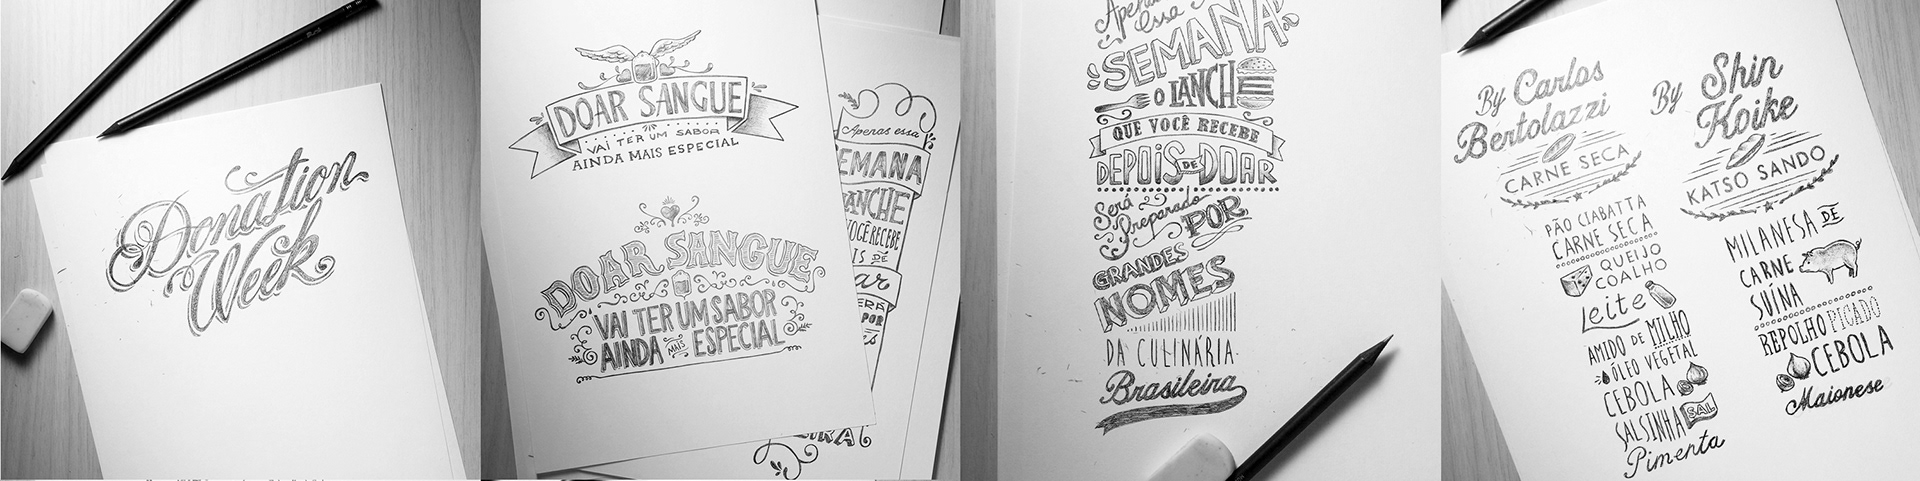 Donation
Week
DOAR SANGUE
VAI TER UM SABOR
AINDA MAIS ESPECIAL
DOAR SANGUE
VAI TER UM SABOR
AINDA MAIS ESPECIAL
Apenas essa
EMANA
ANCHE
VOCÊ RECEBE
IS DE
ar
ERÁ
POR
Apenas
essa
SEMANA
O LANCHE
QUE VOCÊ RECEBE
DEPOIS DE DOAR
Será
Preparado
POR
GRANDES
NOMES
DA CULINÁRIA
Brasileira
By Carlos
Bertolazzi
CARNE SECA
PÃO CIABATTA
CARNE SECA
QUEIJO
COALHO
Leite
AMIDO DE MILHO
ÓLEO VEGETAL
CEBOLA
SALSINHA SAL
Pimenta
By Shin
Koike
KATSO SANDO
MILANESA DE
CARNE
SUÍNA
REPOLHO PICADO
CEBOLA
Maionese